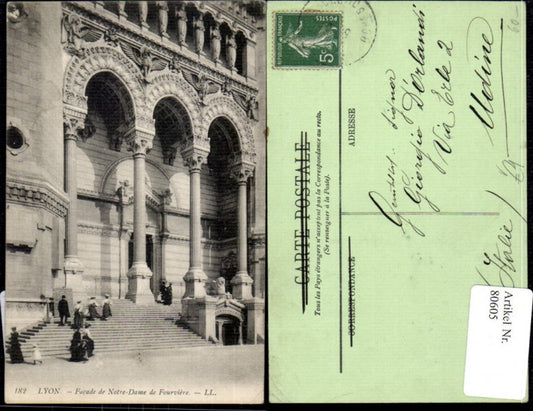 182 LYON. - Façade de Notre-Dame de Fourvière. - LL.
POSTES
5c
CARTE POSTALE
Tous les Pays étrangers n'acceptent pas la Correspondance au recto.
(Se renseigner à la Poste).
CORRESPONDANCE
ADRESSE
Signor
Giorgio D'Orlandi
Via Erle 2
Udine
Italie
Artikel Nr.
80605